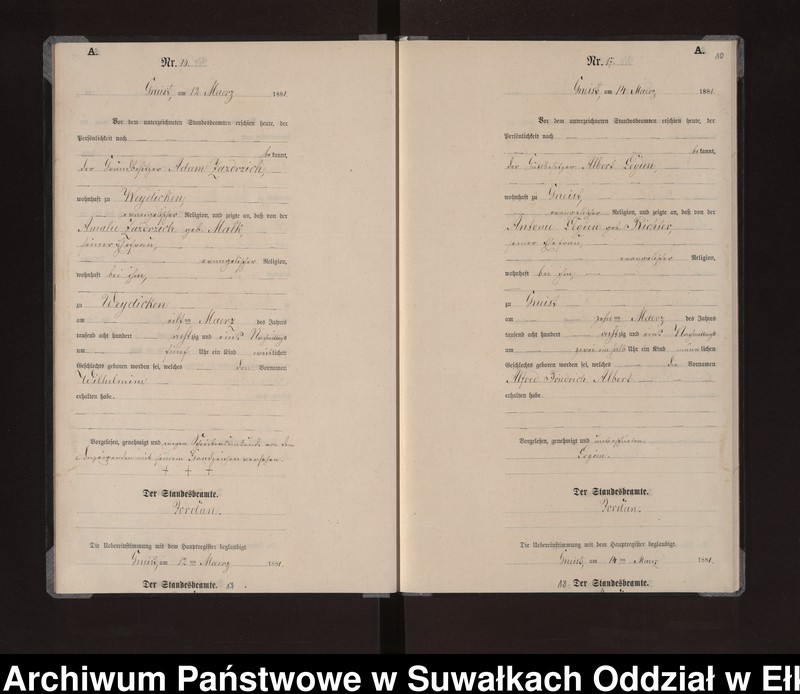 A.
Nr. 19.
Gruist, am 12. Maerz 1881.
Vor dem unterzeichneten Standesbeamten erschien heute, der
Persönlichkeit nach
bekannt,
der Grundbesitzer Adam Zazdrzich,
wohnhaft zu Weydicken,
evangelischer Religion, und zeigte an, daß von der
Amalie Zazdrzich geb. Malk,
seiner Ehefrau,
evangelischer Religion,
wohnhaft bei ihm,
zu Weydicken
am elften Maerz des Jahres
tausend acht hundert achtzig und eins Nachmittags
um fünf Uhr ein Kind weiblichen
Geschlechts geboren worden sei, welches den Vornamen
Wilhelmine
erhalten habe.
Vorgelesen, genehmigt und wegen Schreibensunkunde von dem
Anzeigenden mit seinem Handzeichen versehen.
+ + +
Der Standesbeamte.
Jordan.
Die Uebereinstimmung mit dem Hauptregister beglaubigt
Gruist, am 12ten Maerz 1881.
Der Standesbeamte.
A.
Nr. 17.
Gruist, am 14. Maerz 1881.
Vor dem unterzeichneten Standesbeamten erschien heute, der
Persönlichkeit nach
bekannt,
der Gutsbesitzer Albert Legien,
wohnhaft zu Gruist,
evangelischer Religion, und zeigte an, daß von der
Antonie Legien geb. Richter,
seiner Ehefrau,
evangelischer Religion,
wohnhaft bei ihm,
zu Gruist
am zehnten Maerz des Jahres
tausend acht hundert achtzig und eins Nachmittags
um zwei ein halb Uhr ein Kind männlichen
Geschlechts geboren worden sei, welches die Vornamen
Alfred Friedrich Albert
erhalten habe.
Vorgelesen, genehmigt und unterschrieben.
Legien.
Der Standesbeamte.
Jordan.
Die Uebereinstimmung mit dem Hauptregister beglaubigt
Gruist, am 14ten Maerz 1881.
Der Standesbeamte.
Archiwum Państwowe w Suwałkach Oddział w Eł